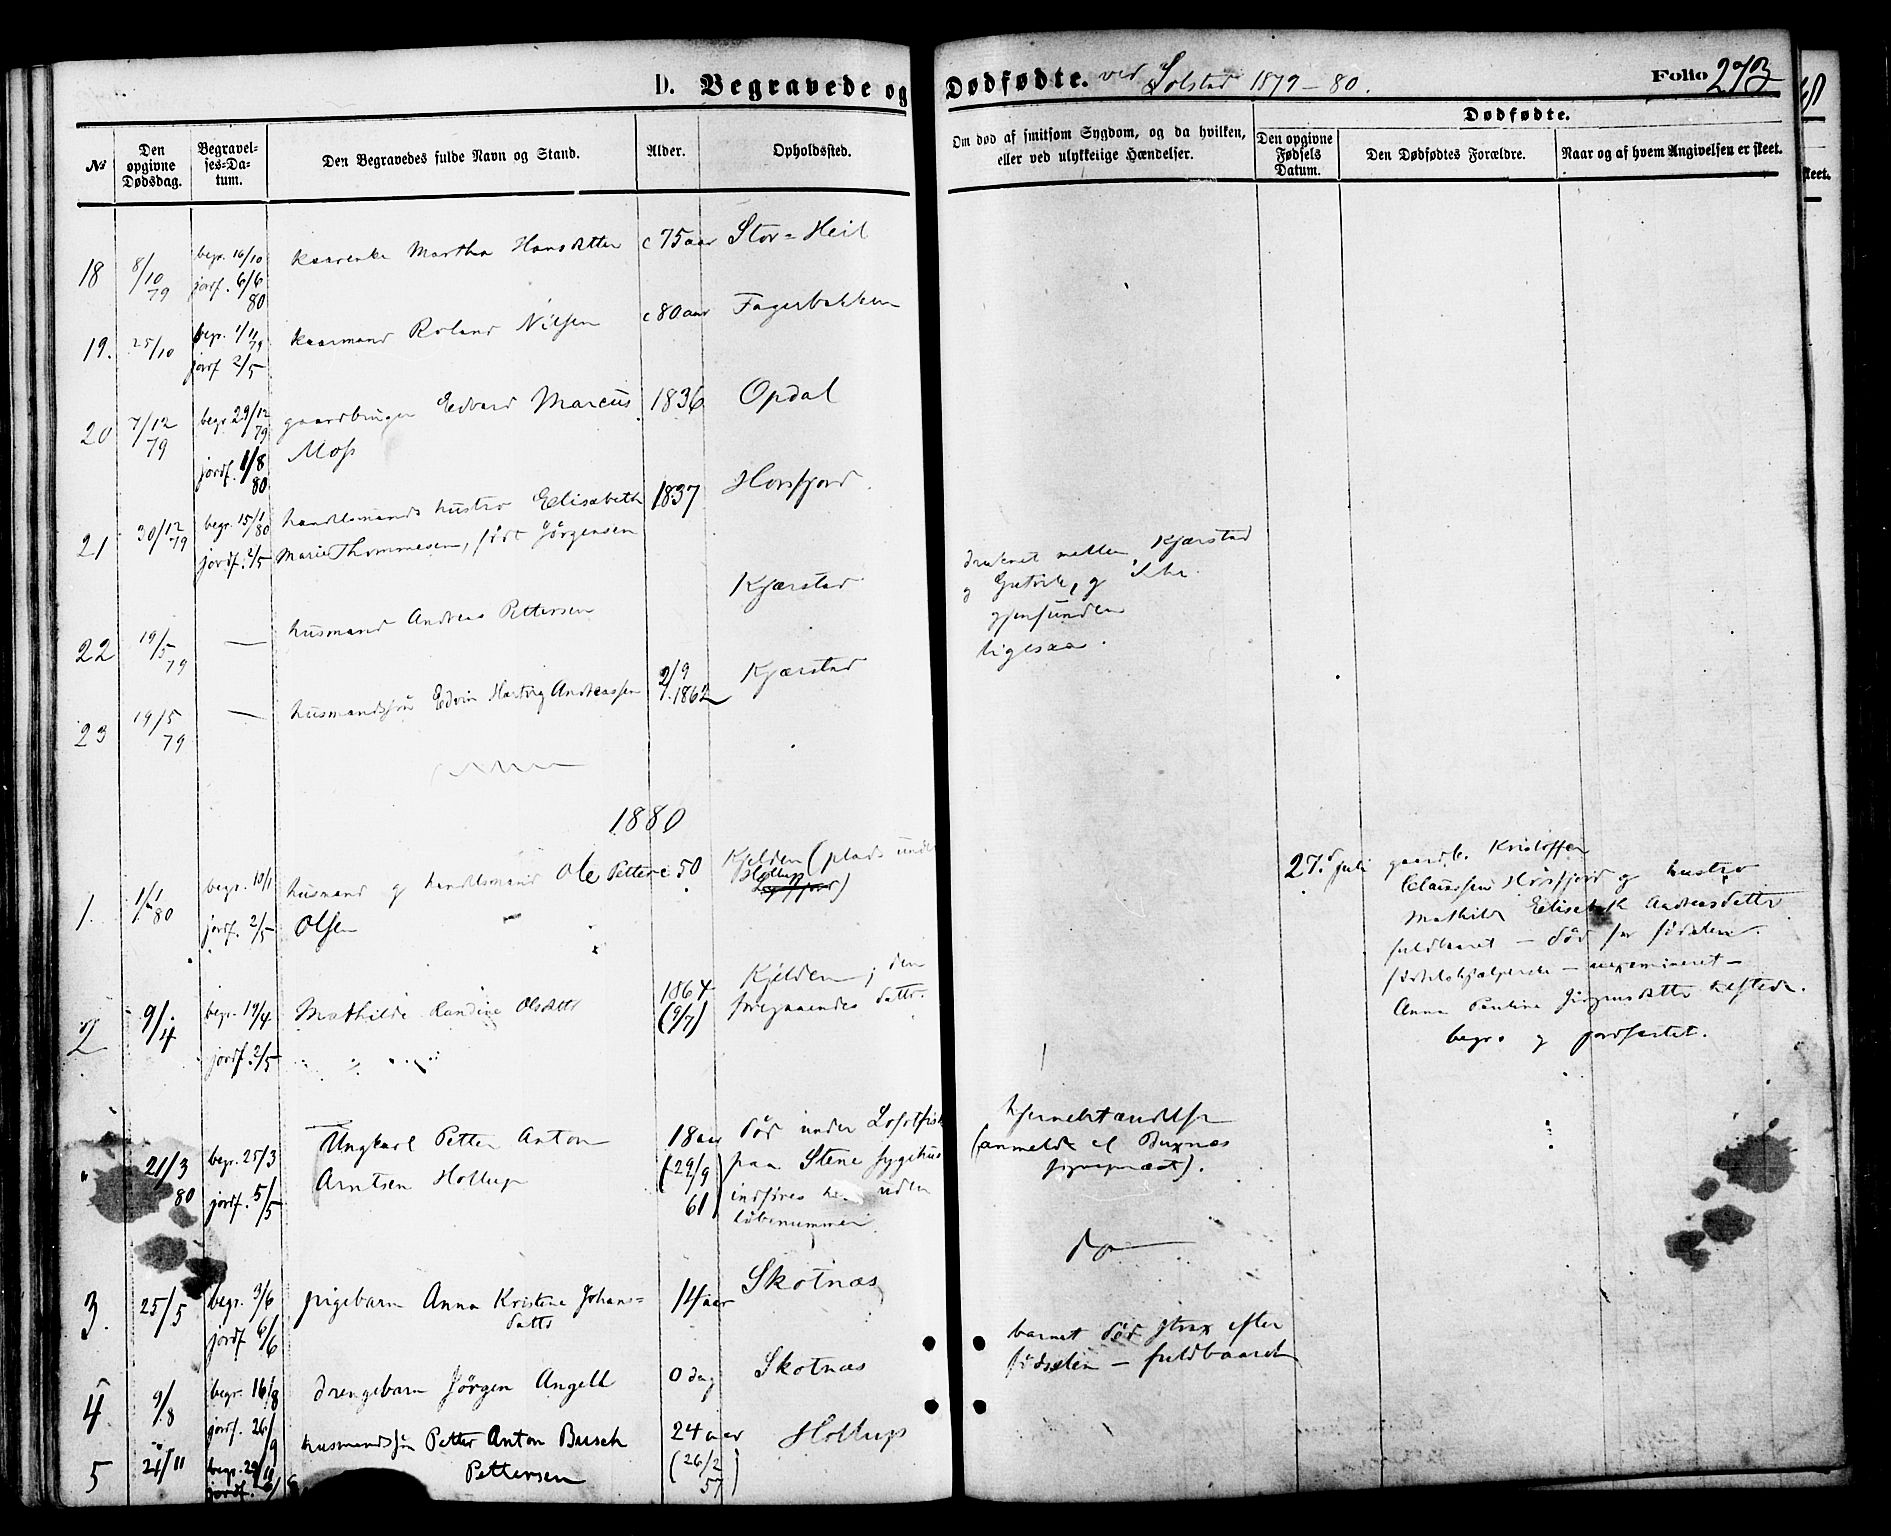 D. Begravede og Dødfødte. ved Solstad 1879-80. Folio 273
№
Den opgivne Dødsdag.
Begravelses-Datum.
Den Begravedes fulde Navn og Stand.
Alder.
Opholdssted.
Om død af smitsom Sygdom, og da hvilken, eller ved ulykkelige Hændelser.
Dødfødte.
Den opgivne Fødsels Datum.
Den Dødfødtes Forældre.
Naar og af hvem Angivelsen er skeet.
18 8/10 79 begr. 16/10 kaarenke Martha Hansdatter c 75 aar Stor-Heil
jordf. 6/6 80
19. 25/10 begr. 1/11 79 kaarmand Roland Nilsen c 80 aar Fagerbakken
jordf 2/5
20 7/12 79 begr 29/12 79 gaardbruger Edvard Marcus 1836 Opdal
jordf. 1/8 80 Moss
21 30/12 79 begr. 15/1 80 handelsmands hustro Elisabeth 1837 Horsfjord.
jordf. 2/5 Marie Thommesen, født Jørgensen
22 19/5 79 — husmand Andreas Pettersen Kjærstad
druknet mellem Kjærstad
og og ikke
gjenfunden
23 19/5 79 — husmandssøn Edvin Hartvig Andreassen 2/9 1862 Kjærstad
ligesaa.
1880
1. 1/1 80 begr. 10/1 husmand og handelsmand Ole Petter c 50 Kjelden (plads under
jordf. 2/5 Olsen Hollup)
27. Juli gaardb. Kristoffer
Claussen Horsfjord og hustro
Mathilde Elisabeth Andreasdatter
fuldbaaret — død før fødselen.
fødselshjælperske — uexamineret —
Anna Pauline Jörgensdatter
begr. og jordfæstet.
2 9/4 begr. 19/4 Mathilde Randine Olsdatter 1864 (9/7) Kjelden, den
jordf. 2/5 foregaaendes datter.
" 21/3 80 begr. 25/3 Ungkarl Petter Anton 18 aar død under Lofotfisk
jordf. 5/5 Arntsen Hollup (29/9 61) paa Stene sygehus
indføres her uden
løbenummer
hjernebetændelse
(anmeldt af Buxnæs
sognepræst).
3. 25/5 begr. 3/6 pigebarn Anna Kristine Johans= 14 aar Skotnæs
jordf 6/6 datter
do —
4 9/8 begr. 16/8 drengebarn Jørgen Angell 0 dag Skotnæs
jordf. 26/9
barnet død strax efter
fødselen — fuldbaaret
5 21/11 begr. 29/11 husmandssøn Petter Anton Busch 24 aar Hollup
jordf. Pettersen (26/2 57)